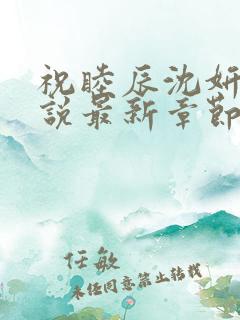 祝睦辰沈妍
说最新章节
任敏
未经同意禁止转载